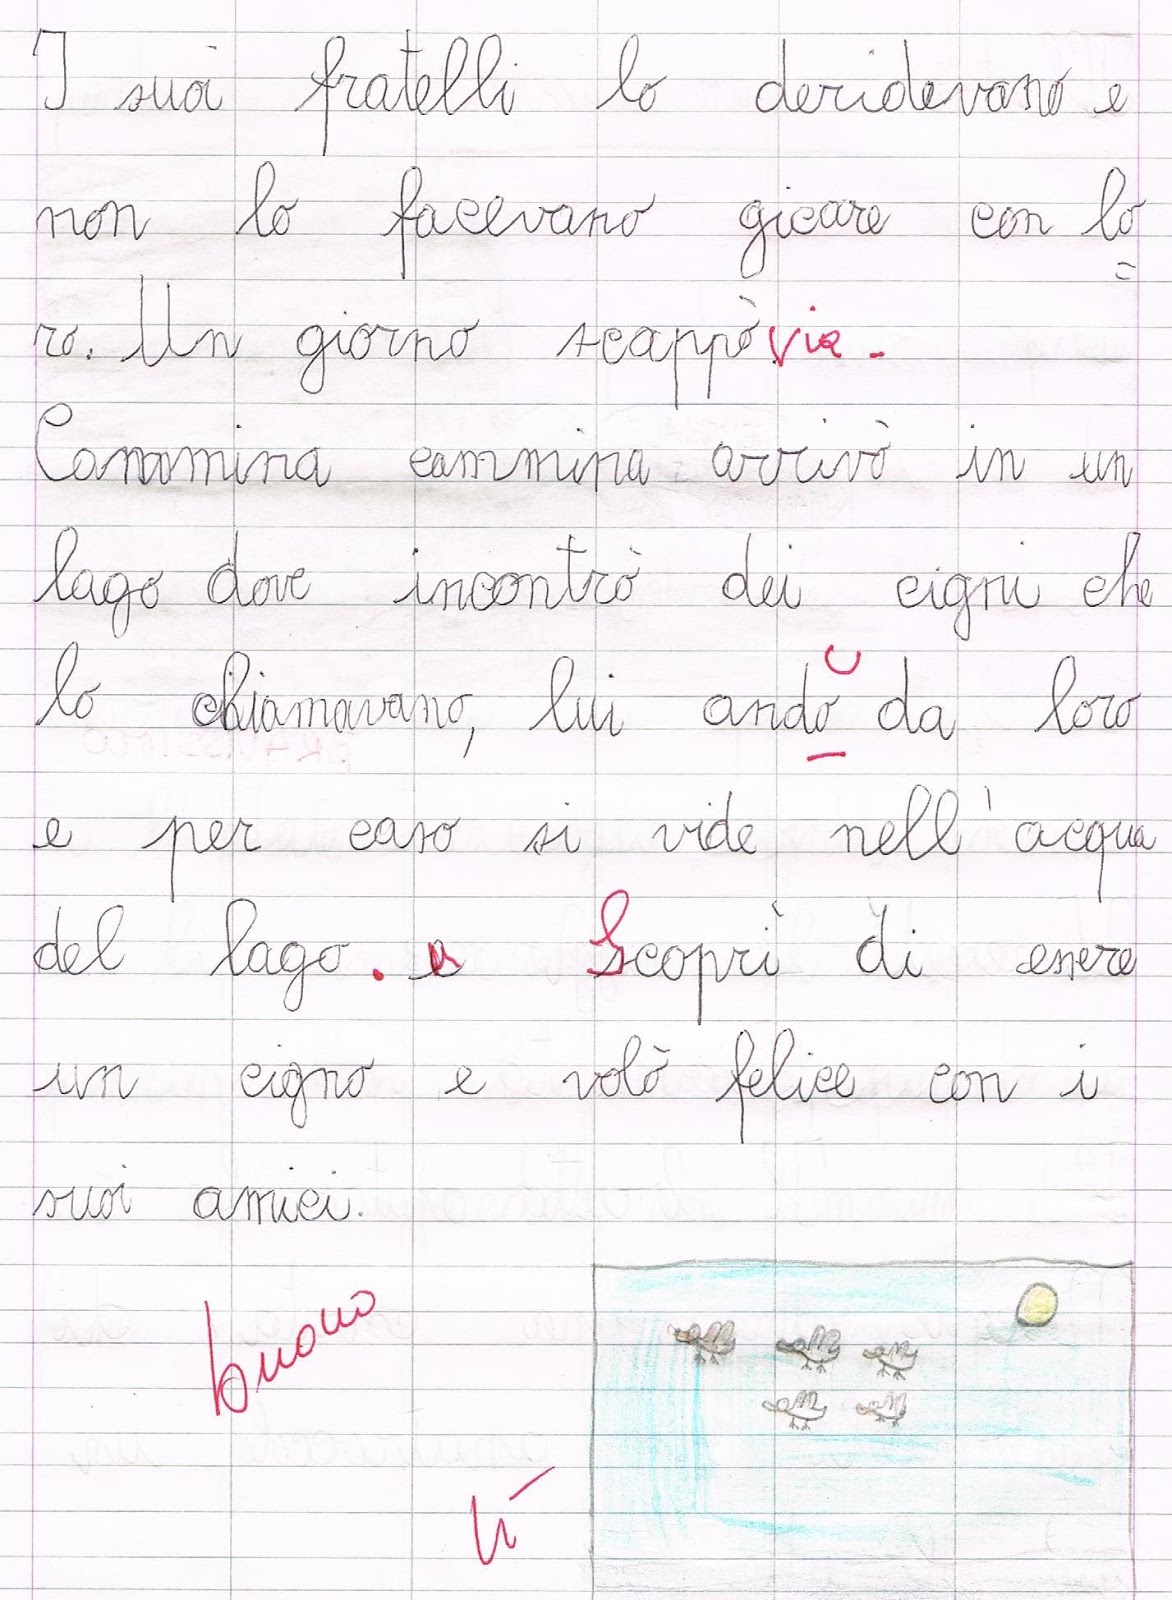 I suoi fratelli lo deridevano e
non lo facevano gicare con lo
=
ro. Un giorno scappò via.
Cammina cammina arrivò in un
lago dove incontrò dei cigni che
lo chiamavano, lui andò da loro
e per caso si vide nell'acqua
del lago. e Scoprì di essere
un cigno e volò felice con i
suoi amici.
buono